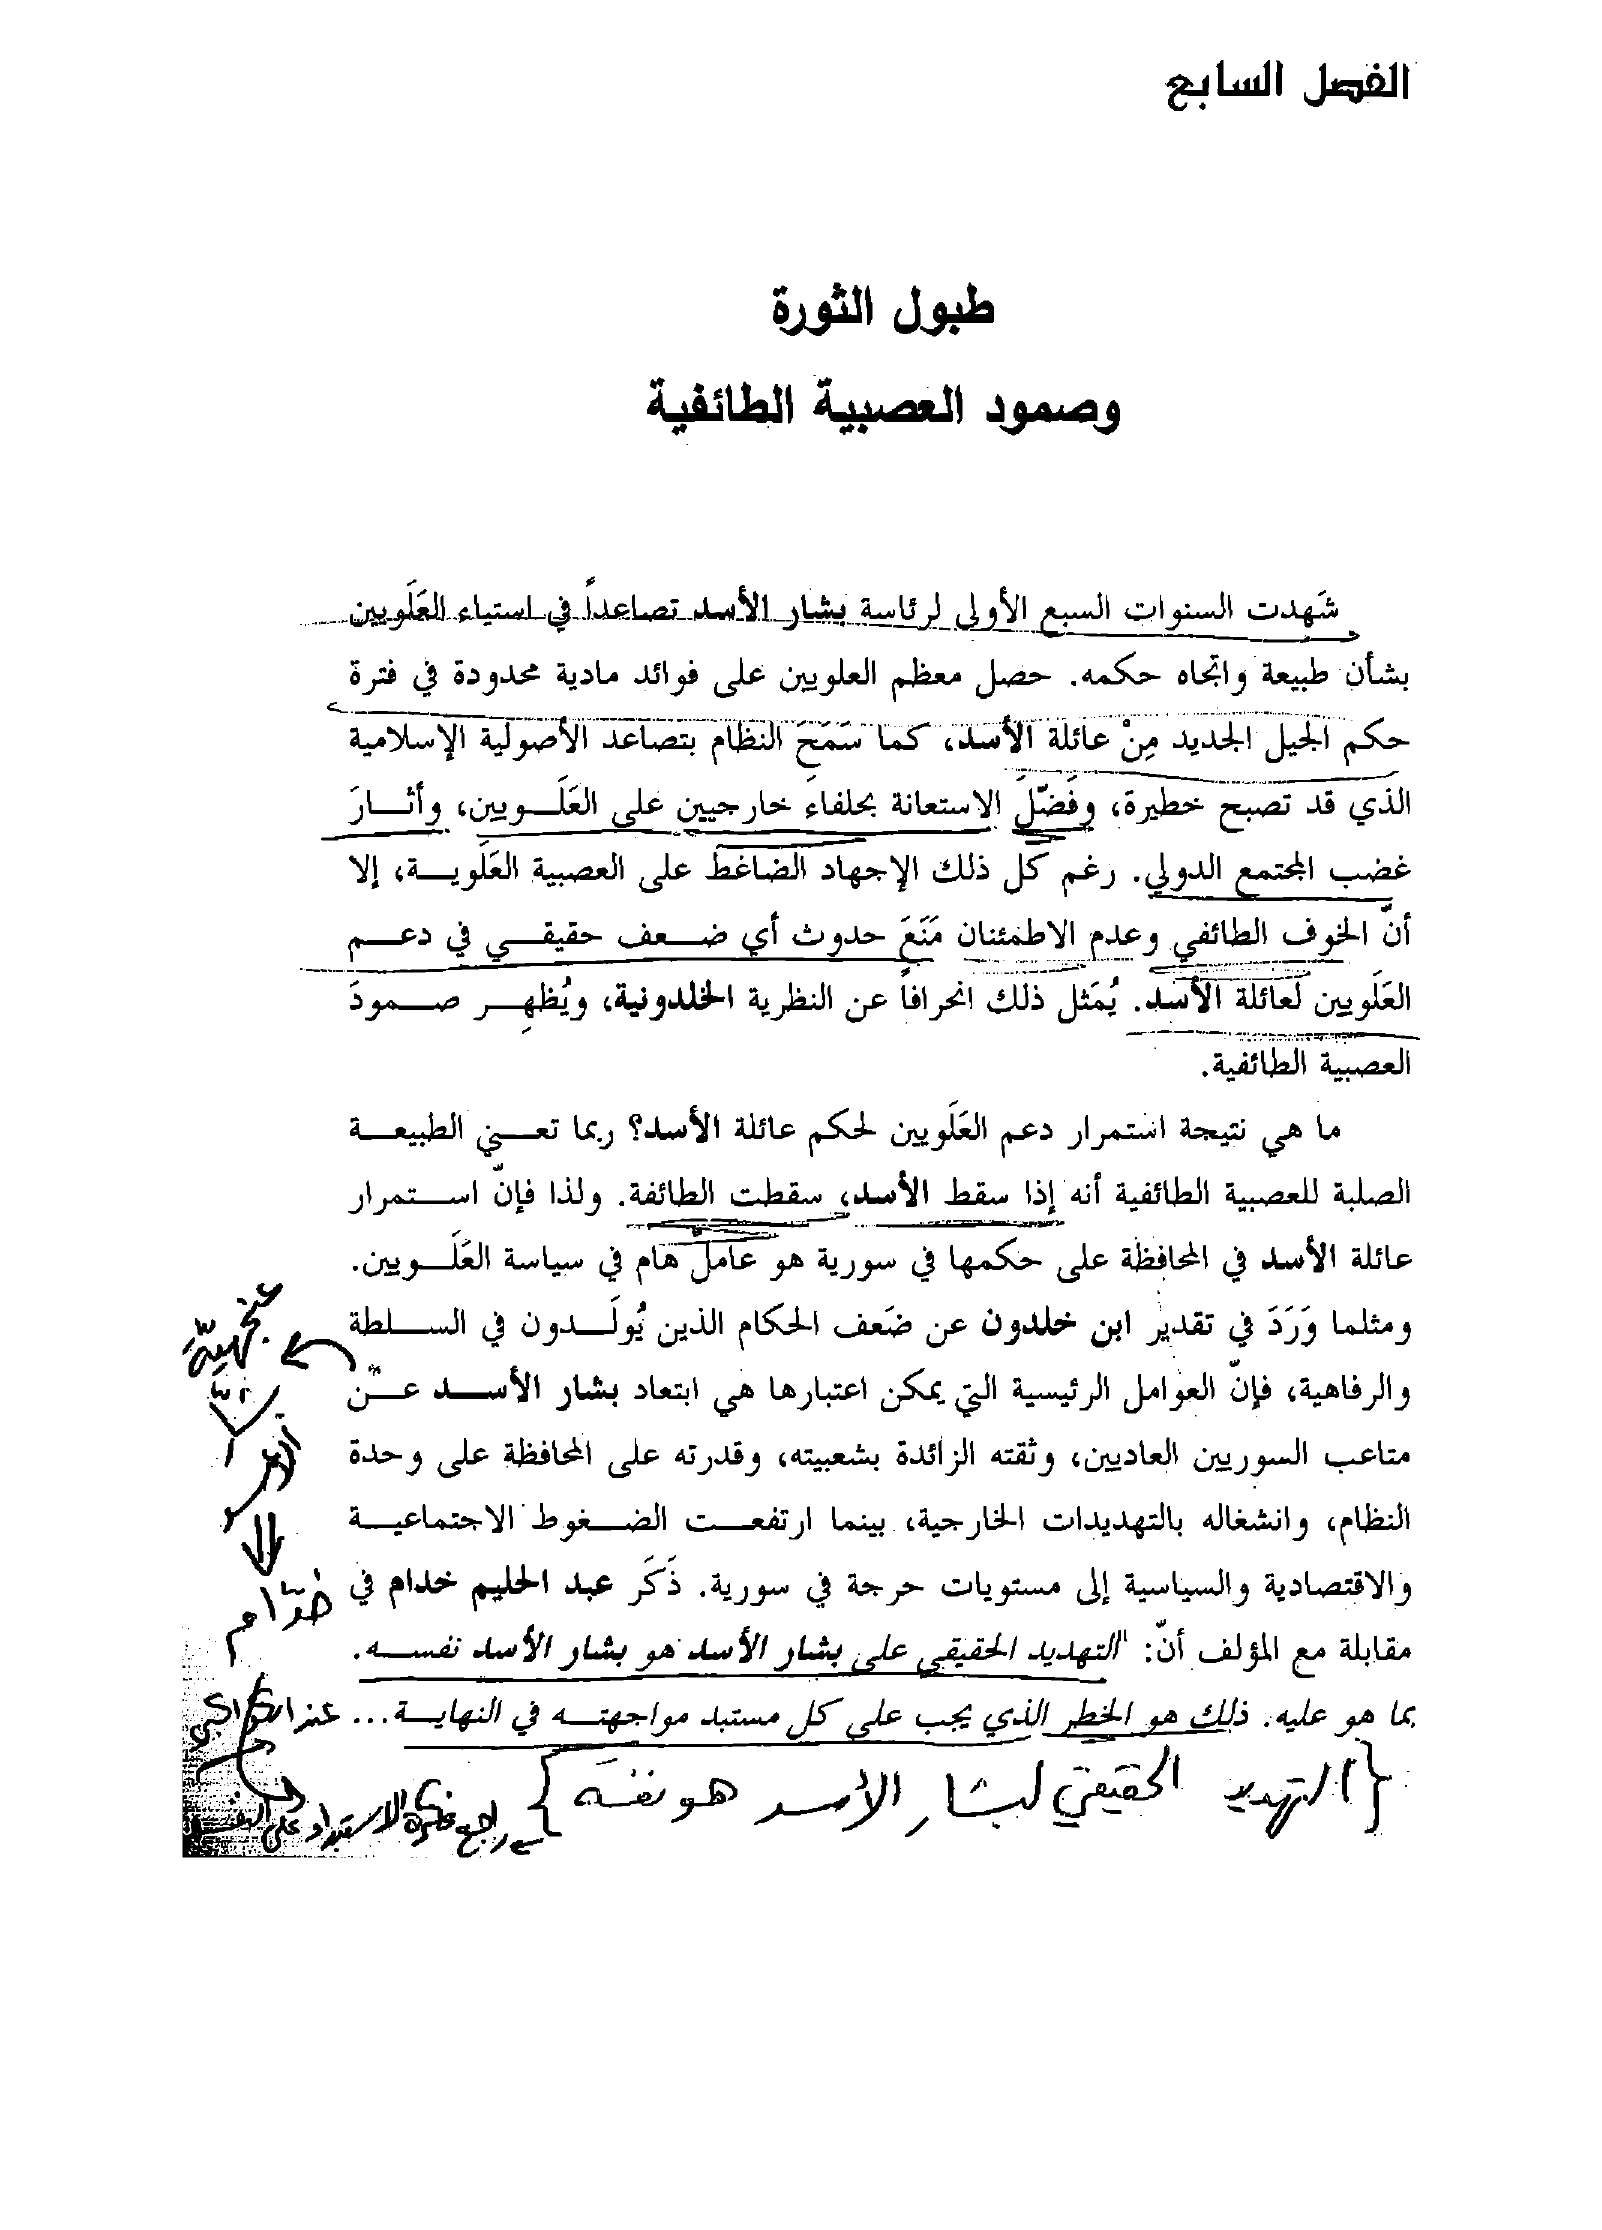 الفصل السابع
طبول الثورة
وصمود العصبية الطائفية
شَهِدت السنوات السبع الأولى لرئاسة بشار الأسد تصاعداً في استياء العَلَويين
بشأن طبيعة واتجاه حكمه. حصل معظم العلويين على فوائد مادية محدودة في فترة
حكم الجيل الجديد مِنْ عائلة الأسد، كما سَمَحَ النظام بتصاعد الأصولية الإسلامية
الذي قد تصبح خطيرة، وفَضّلَ الاستعانة بحلفاءَ خارجيين على العَلَـــويين، وأثـــارَ
غضب المجتمع الدولي. رغم كل ذلك الإجهاد الضاغط على العصبية العَلَويـــة، إلا
أنّ الخوف الطائفي وعدم الاطمئنان مَنَعَ حدوث أي ضـــعف حقيقـــي في دعـــم
العَلَويين لعائلة الأسد. يُمَثل ذلك انحرافاً عن النظرية الخلدونية، ويُظهِـــر صـــمودَ
العصبية الطائفية.
ما هي نتيجة استمرار دعم العَلَويين لحكم عائلة الأسد؟ ربما تعـــني الطبيعـــة
الصلبة للعصبية الطائفية أنه إذا سقط الأسد، سقطت الطائفة. ولذا فإنّ اســـتمرار
عائلة الأسد في المحافظة على حكمها في سورية هو عامل هام في سياسة العَلَـــويين.
ومثلما وَرَدَ في تقدير ابن خلدون عن ضَعف الحكام الذين يُولَـــدون في الســـلطة
والرفاهية، فإنّ العوامل الرئيسية التي يمكن اعتبارها هي ابتعاد بشار الأســـد عـــن
متاعب السوريين العاديين، وثقته الزائدة بشعبيته، وقدرته على المحافظة على وحدة
النظام، وانشغاله بالتهديدات الخارجية، بينما ارتفعـــت الضـــغوط الاجتماعيـــة
والاقتصادية والسياسية إلى مستويات حرجة في سورية. ذَكَر عبد الحليم خدام في
مقابلة مع المؤلف أنّ: "التهديد الحقيقي على بشار الأسد هو بشار الأسد نفســـه.
بما هو عليه. ذلك هو الخطر الذي يجب على كل مستبد مواجهتـــه في النهايـــة...
عنجهيّة
بشّار
الأسد
خدّام
عند الكواكبي
{التهديد الحقيقي لبشار الأسد هو نفسه}
راجع فكرة الاستبداد على النفس